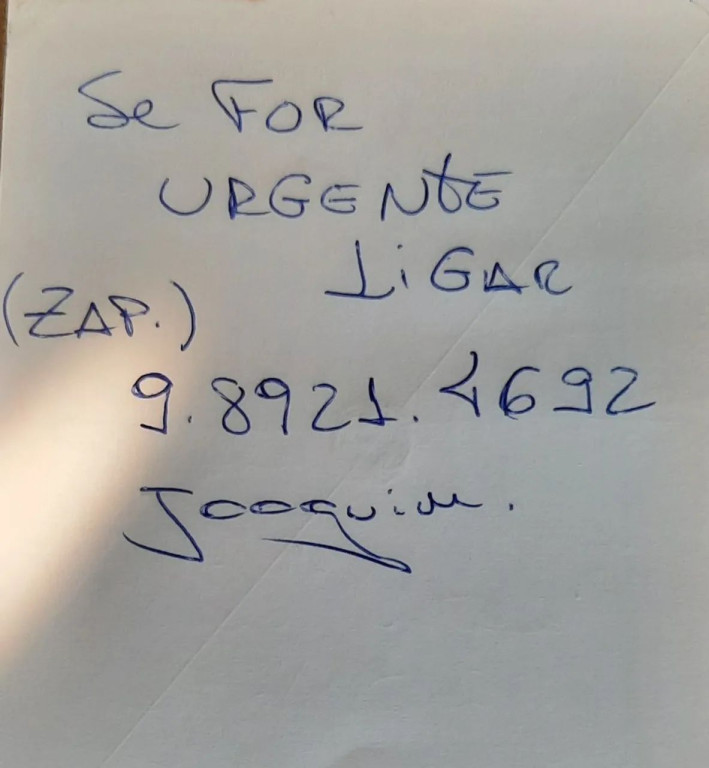 Se FOR
URGENTE
LiGAR
(ZAP.)
9.8921.4692
Joaquim.